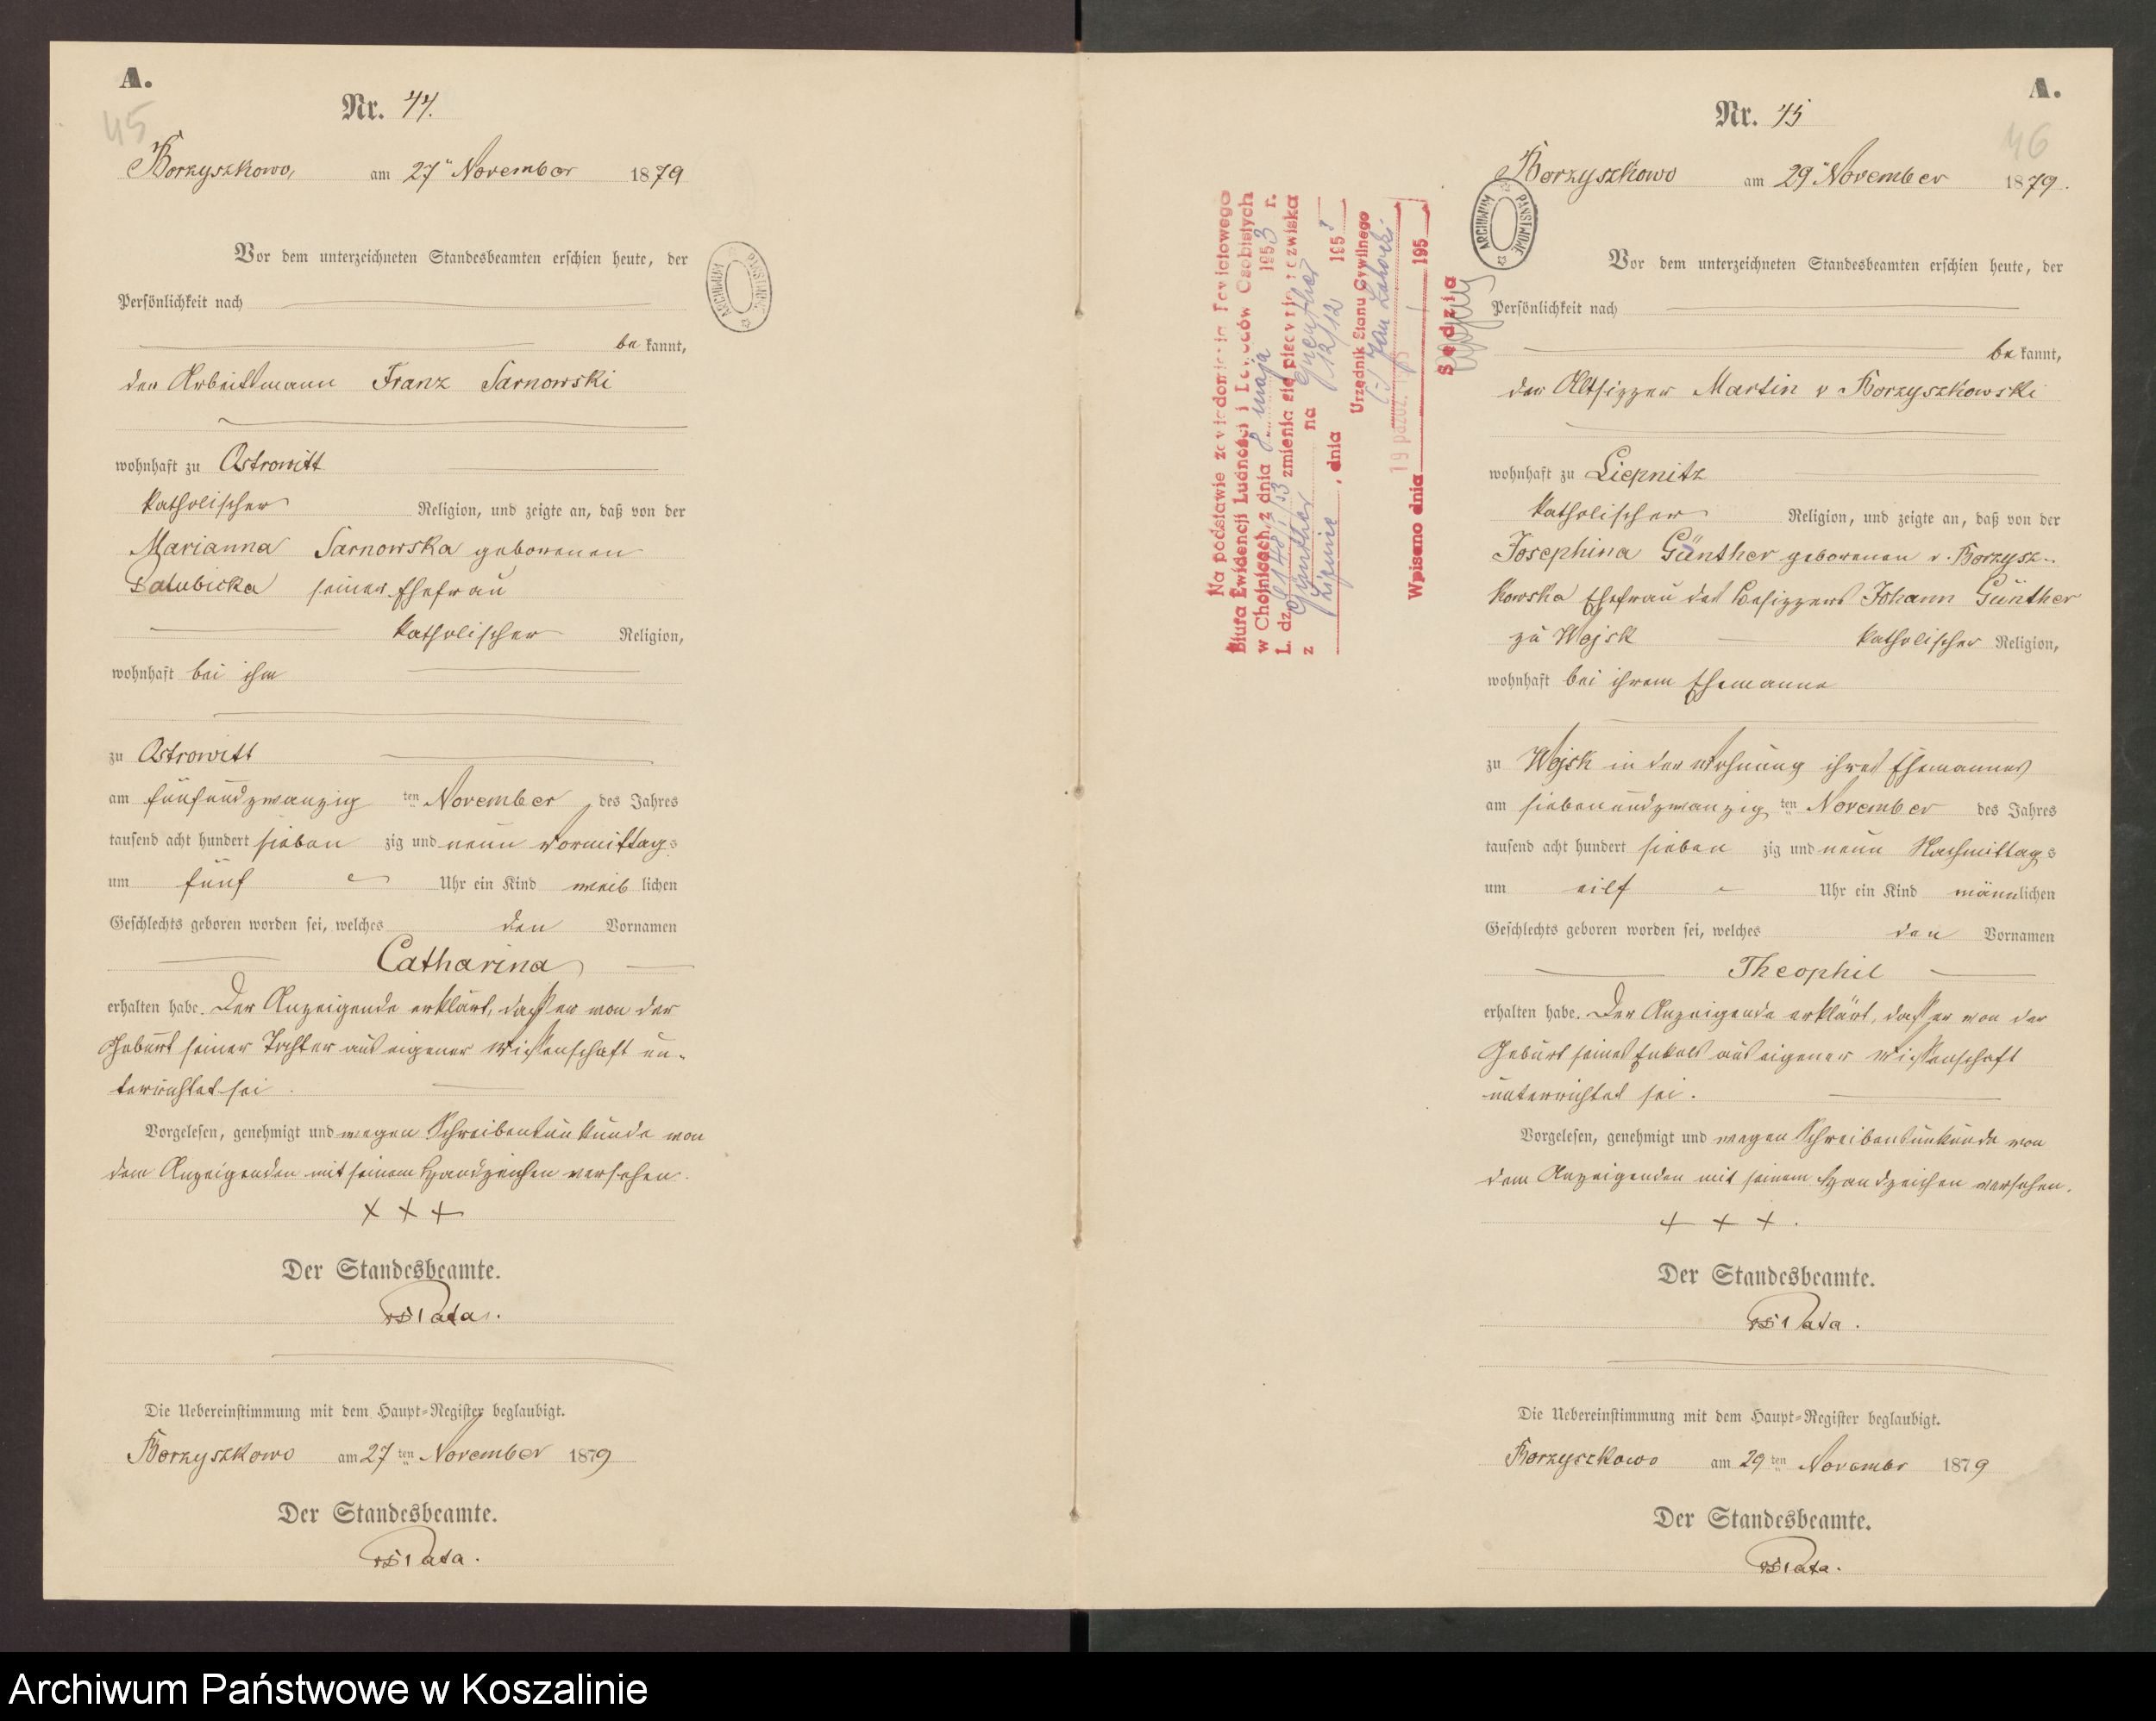 A.
45
Nr. 44.
Borzyszkowo, am 27" November 1879
Vor dem unterzeichneten Standesbeamten erschien heute, der
Persönlichkeit nach
be kannt,
der Arbeitsmann Franz Sarnowski
wohnhaft zu Ostrowitt
katholischer Religion, und zeigte an, daß von der
Marianna Sarnowska geborenen
seiner Ehefrau
katholischer Religion,
wohnhaft bei ihm
zu Ostrowitt
am fünfundzwanzig ten November des Jahres
tausend acht hundert sieben zig und neun Vormittags
um fünf Uhr ein Kind weib lichen
Geschlechts geboren worden sei, welches den Vornamen
Catharina
erhalten habe. Der Anzeigende erklärt, daß er von der
Geburt seiner Tochter aus eigener Wissenschaft un-
terrichtet sei
Vorgelesen, genehmigt und wegen Schreibensunkunde von
dem Anzeigenden mit seinem Handzeichen versehen.
+ + +
Der Standesbeamte.
Die Uebereinstimmung mit dem Haupt-Register beglaubigt.
Borzyszkowo am 27 ten November 1879
Der Standesbeamte.
ARCHIWUM PAŃSTWOWE
A.
46
Nr. 45
Borzyszkowo am 29" November 1879.
Vor dem unterzeichneten Standesbeamten erschien heute, der
Persönlichkeit nach
be kannt,
der Altsitzer Martin v Borzyszkowski
wohnhaft zu Liepnitz
katholischer Religion, und zeigte an, daß von der
Josephina Günther geborenen v. Borzysz-
kowska Ehefrau des Besitzers Johann Günther
zu Wojsk katholischer Religion,
wohnhaft bei ihrem Ehemanne
zu Wojsk in der Wohnung ihres Ehemannes
am siebenundzwanzig ten November des Jahres
tausend acht hundert sieben zig und neun Nachmittags
um eilf Uhr ein Kind männlichen
Geschlechts geboren worden sei, welches den Vornamen
Theophil
erhalten habe. Der Anzeigende erklärt, daß er von der
Geburt seines Enkels aus eigener Wissenschaft
unterrichtet sei.
Vorgelesen, genehmigt und wegen Schreibensunkunde von
dem Anzeigenden mit seinem Handzeichen versehen.
+ + + .
Der Standesbeamte.
Die Uebereinstimmung mit dem Haupt-Register beglaubigt.
Borzyszkowo am 29 ten Novembr 1879
Der Standesbeamte.
ARCHIWUM PAŃSTWOWE
Na podstawie zawiadomienia Powiatowego
Biura Ewidencji Ludności i Dowodów Osobistych
w Chojnicach, z dnia 8 maja 1953 r.
L. dz. zmienia się pisownię nazwiska
z Günther na Gienther
Lipnie, dnia 12/12 195
Urzędnik Stanu Cywilnego
(-) Jan
19 paźdz.
Wpisano dnia 195
Sędzia
Archiwum Państwowe w Koszalinie